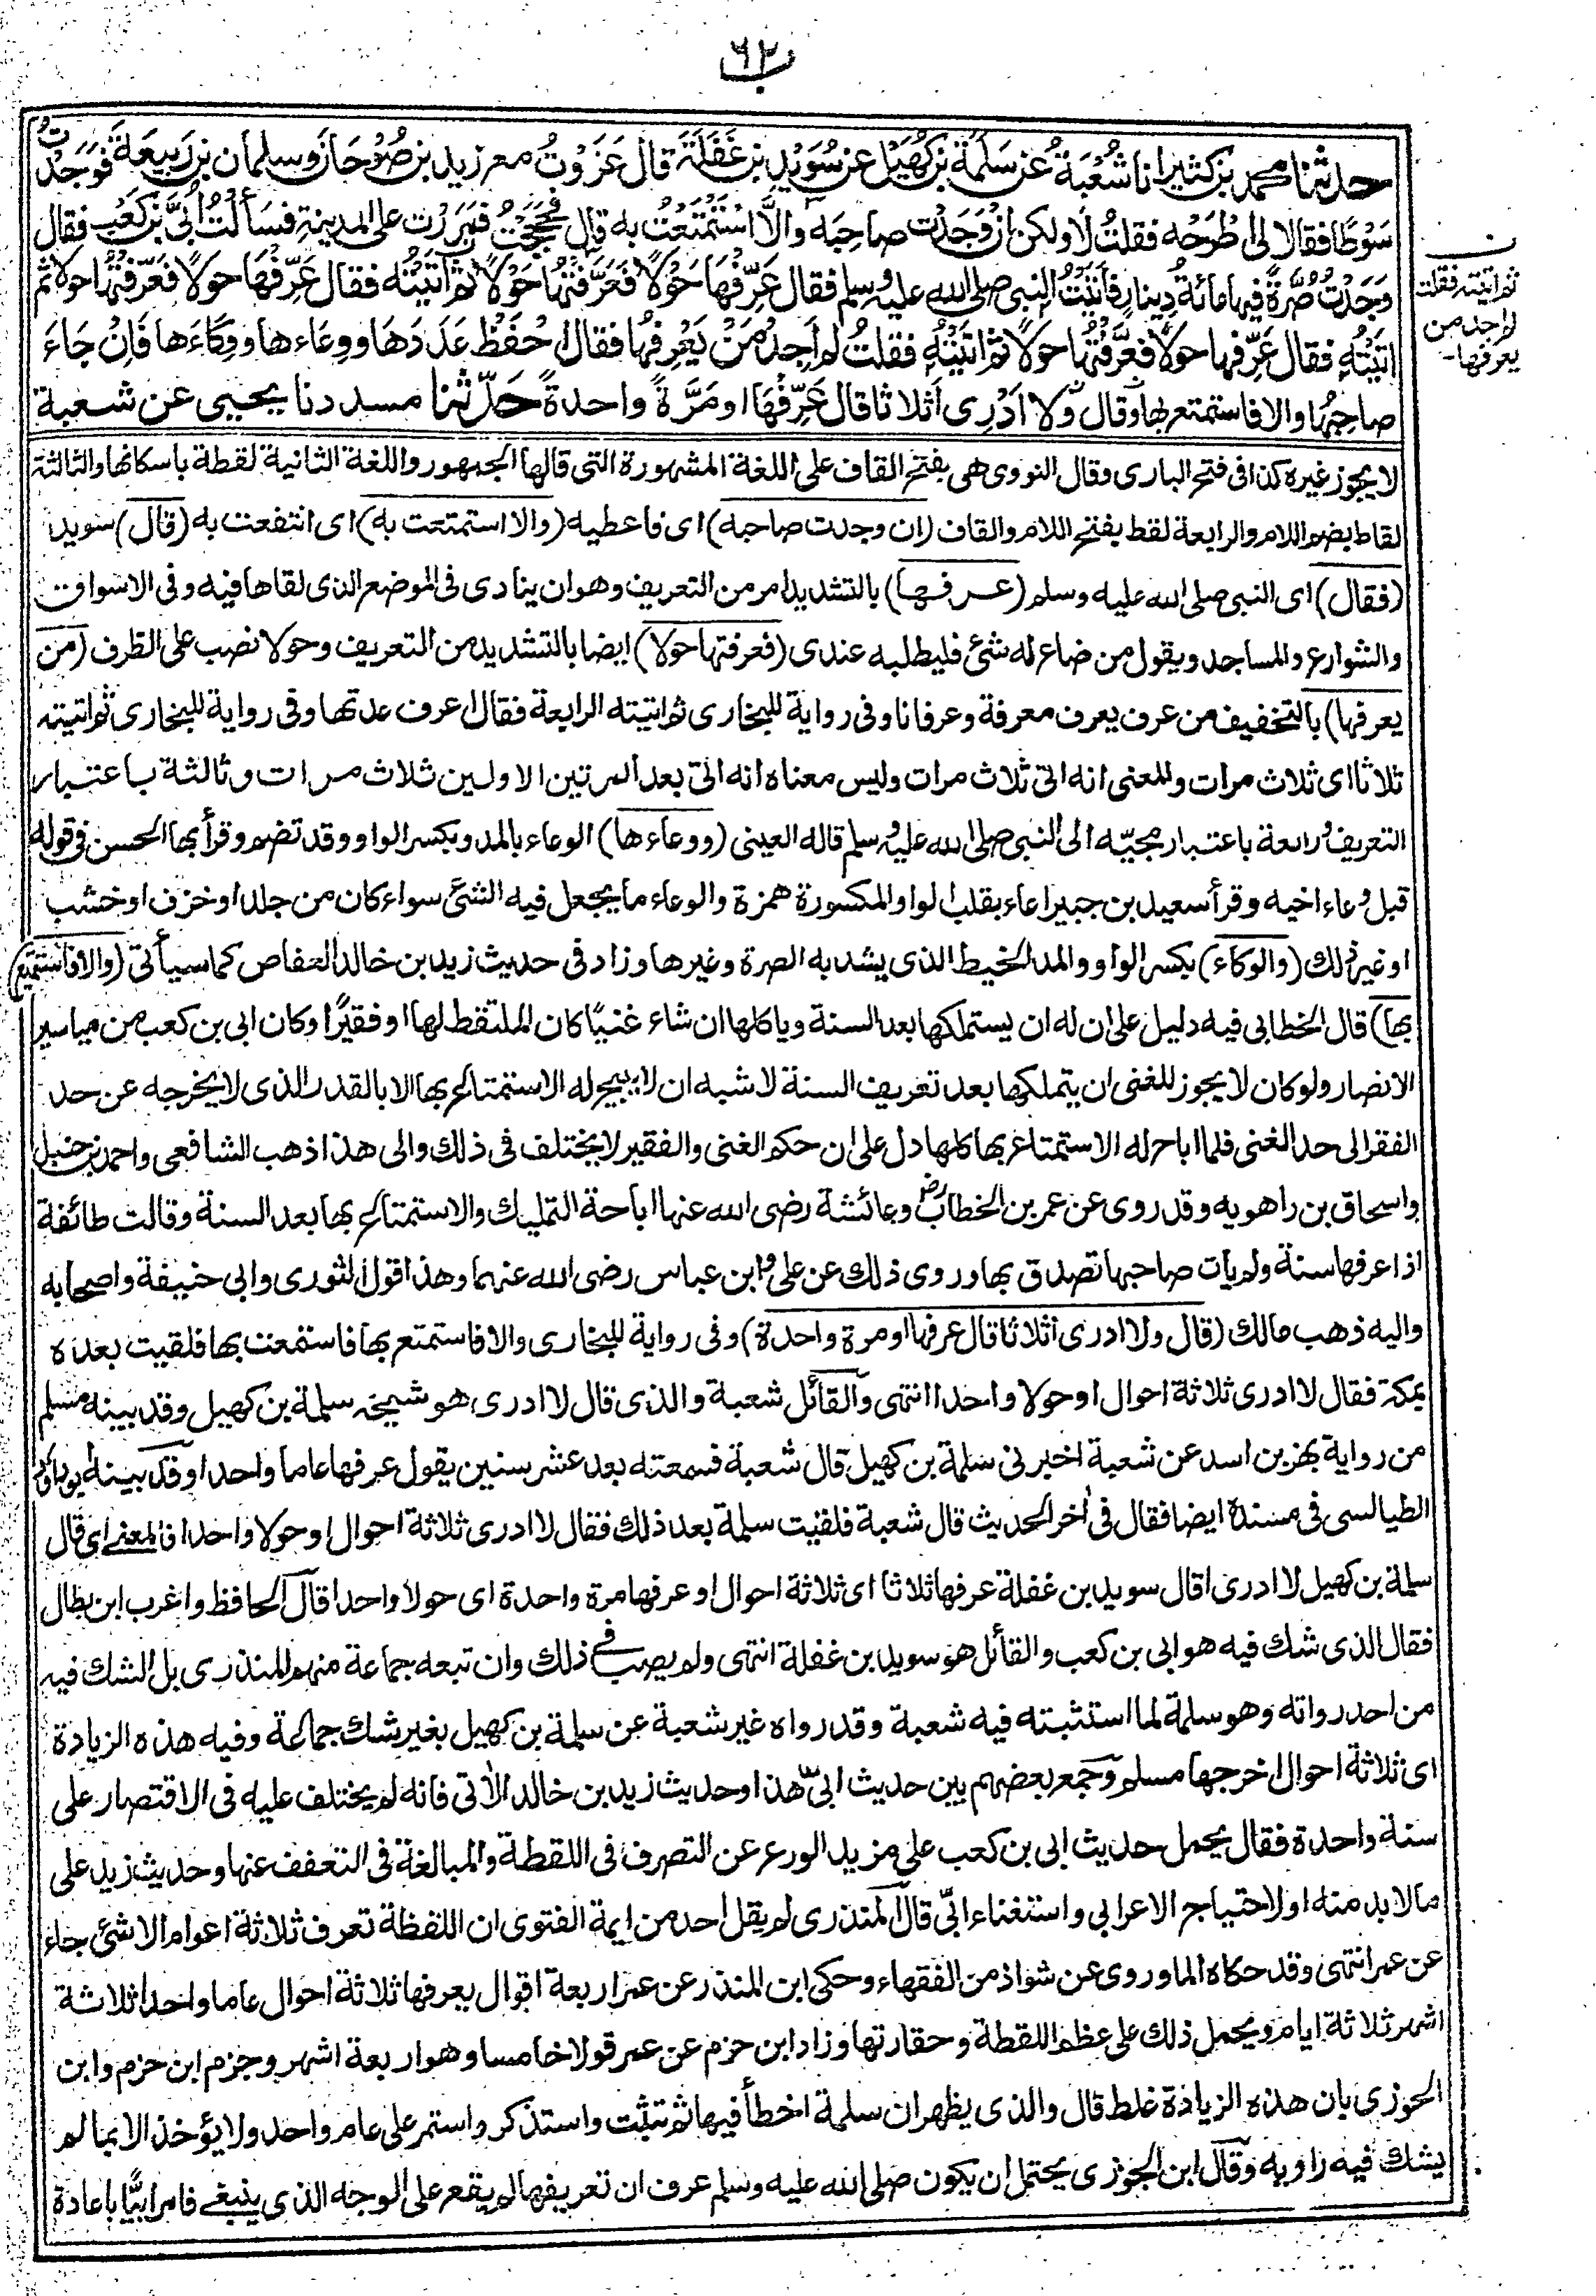 ٦٢
حدثنا محمد بن كثير انا شُعْبَةُ عن سَلَمَةَ بن كُهَيْل عن سُوَيْدِ بن غَفَلَةَ قال غَزَوْتُ مع زيد بن صُوْحَانَ وسلمان بن رَبِيعَةَ فَوَجَدْتُ
سَوْطًا فقالا لى اطْرَحْه فقلتُ لا ولكن ان وَجَدْتُ صاحِبَه والَّا اسْتَمْتَعْتُ به قال فَحَجَجْتُ فَمَرَرْتُ على المدينةِ فسَأَلْتُ أُبَىَّ بن كَعْبٍ فقال
وَجَدْتُ صُرَّةً فيها مائةُ دِينارٍ فأتَيْتُ النبى صلى الله عليه وسلم فقال عَرِّفْها حَوْلًا فَعَرَّفْتُها حَوْلًا ثم اتَيْتُه فقال عَرِّفْهَا حَوْلًا فعَرَّفْتُها حولا ثم
اتَيْتُه فقال عَرِّفها حولًا فعَرَّفْتُها حولًا ثم اتَيْتُه فقلتُ لم اَجِدْ مَنْ يَعْرِفُها فقال احْفَظْ عَدَدَهَا ووِعَاءها ووِكَاءَها فَاِنْ جَاءَ
صاحِبُها والا فاستمتع بها وقال ولا اَدْرِى اَثلاثا قال عَرِّفْهَا او مَرَّةً واحدةً حَدّثنا مسدد نا يحيى عن شعبة
ن
ثم اتيته فقلت
لم اجد من
يعرفها-
لا يجوز غيره كذا فى فتح البارى وقال النووى هى بفتح القاف على اللغة المشهورة التى قالها الجمهور واللغة الثانية لقطة باسكانها والثالثة
لقاط بضم اللام والرابعة لقط بفتح اللام والقاف (ان وجدت صاحبه) اى فاعطيه (والا استمتعت به) اى انتفعت به (قال) سويد
(فقال) اى النبى صلى الله عليه وسلم (عرفها) بالتشديد امر من التعريف وهو ان ينادى فى الموضع الذى لقاها فيه وفى الاسواق
والشوارع والمساجد ويقول من ضاع له شئ فليطلبه عندى (فعرفتها حولا) ايضا بالتشديد من التعريف وحولا نصب على الظرف (من
يعرفها) بالتخفيف من عرف يعرف معرفة وعرفانا وفى رواية للبخارى ثم اتيته الرابعة فقال اعرف عدتها وفى رواية للبخارى ثم اتيته
ثلاثا اى ثلاث مرات والمعنى انه اتى ثلاث مرات وليس معناه انه اتى بعد المرتين الاولين ثلاث مرات وثالثة باعتبار
التعريف ورابعة باعتبار مجيّه الى النبى صلى الله عليه وسلم قاله العينى (ووعاءها) الوعاء بالمد وبكسر الواو وقد تضم وقرأ بها الحسن فى قوله
قبل وعاء اخيه وقرأ سعيد بن جبير اعاء بقلب الواو المكسورة همزة والوعاء ما يجعل فيه الشئ سواء كان من جلد او خزف او خشب
او غير ذلك (والوكاء) بكسر الواو والمد الخيط الذى يشد به الصرة وغيرها وزاد فى حديث زيد بن خالد العفاص كما سيأتى (والا فاستمتع
بها) قال الخطابى فيه دليل على ان له ان يستملكها بعد السنة وياكلها ان شاء غنيًا كان الملتقط لها او فقيرًا وكان ابى بن كعب من مياسير
الانصار ولو كان لا يجوز للغنى ان يتملكها بعد تعريف السنة لاشبه ان لا يبيح له الاستمتاع بها الا بالقدر الذى لا يخرجه عن حد
الفقر الى حد الغنى فلما اباح له الاستمتاع بها كلها دل على ان حكم الغنى والفقير لا يختلف فى ذلك والى هذا ذهب الشافعى واحمد بن حنبل
واسحاق بن راهويه وقد روى عن عمر بن الخطابرض وعائشة رضى الله عنها اباحة التمليك والاستمتاع بها بعد السنة وقالت طائفة
اذا عرفها سنة ولم يات صاحبها تصدق بها وروى ذلك عن على وابن عباس رضى الله عنهما وهذا قول الثورى وابى حنيفة واصحابه
واليه ذهب مالك (قال ولا ادرى اثلاثا قال عرفها او مرة واحدة) وفى رواية للبخارى والا فاستمتع بها فاستمتعت بها فلقيت بعده
بمكة فقال لا ادرى ثلاثة احوال او حولا واحدا انتهى والقائل شعبة والذى قال لا ادرى هو شيخه سلمة بن كهيل وقد بينه مسلم
من رواية بهز بن اسد عن شعبة اخبرنى سلمة بن كهيل قال شعبة فسمعته بعد عشر سنين يقول عرفها عاما واحدا وقد بينه ابو داؤد
الطيالسى فى مسنده ايضا فقال فى أخر الحديث قال شعبة فلقيت سلمة بعد ذلك فقال لا ادرى ثلاثة احوال او حولا واحدا فالمعنى اى قال
سلمة بن كهيل لا ادرى اقال سويد بن غفلة عرفها ثلاثا اى ثلاثة احوال او عرفها مرة واحدة اى حولا واحدا قال الحافظ واغرب ابن بطال
فقال الذى شك فيه هو ابى بن كعب والقائل هو سويد بن غفلة انتهى ولم يصب فى ذلك وان تبعه جماعة منهم المنذرى بل الشك فيه
من احد رواته وهو سلمة لما استثبته فيه شعبة وقد رواه غير شعبة عن سلمة بن كهيل بغير شك جماعة وفيه هذه الزيادة
اى ثلاثة احوال اخرجها مسلم وجمع بعضهم بين حديث ابىّ هذا وحديث زيد بن خالد الأتى فانه لم يختلف عليه فى الاقتصار على
سنة واحدة فقال يحمل حديث ابى بن كعب على مزيد الورع عن التصرف فى اللقطة والمبالغة فى التعفف عنها وحديث زيد على
مالا بد منه او لاحتياج الاعرابى واستغناء ابىّ قال المنذرى لم يقل احد من ايمة الفتوى ان اللقطة تعرف ثلاثة اعوام الا شئ جاء
عن عمر انتهى وقد حكاه الماوروى عن شواذ من الفقهاء وحكى ابن المنذر عن عمر اربعة اقوال يعرفها ثلاثة احوال عاما واحدا ثلاثة
اشهر ثلاثة ايام ويحمل ذلك على عظم اللقطة وحقارتها وزاد ابن حزم عن عمر قولا خامسا وهو اربعة اشهر وجزم ابن حزم وابن
الجوزى بان هذه الزيادة غلط قال والذى يظهر ان سلمة اخطأ فيها ثم تثبت واستذكر واستمر على عام واحد ولا يؤخذ الا بما لم
يشك فيه راويه وقال ابن الجوزى يحتمل ان يكون صلى الله عليه وسلم عرف ان تعريفها لم يقع على الوجه الذى ينبغى فامر ابيًّا باعادة